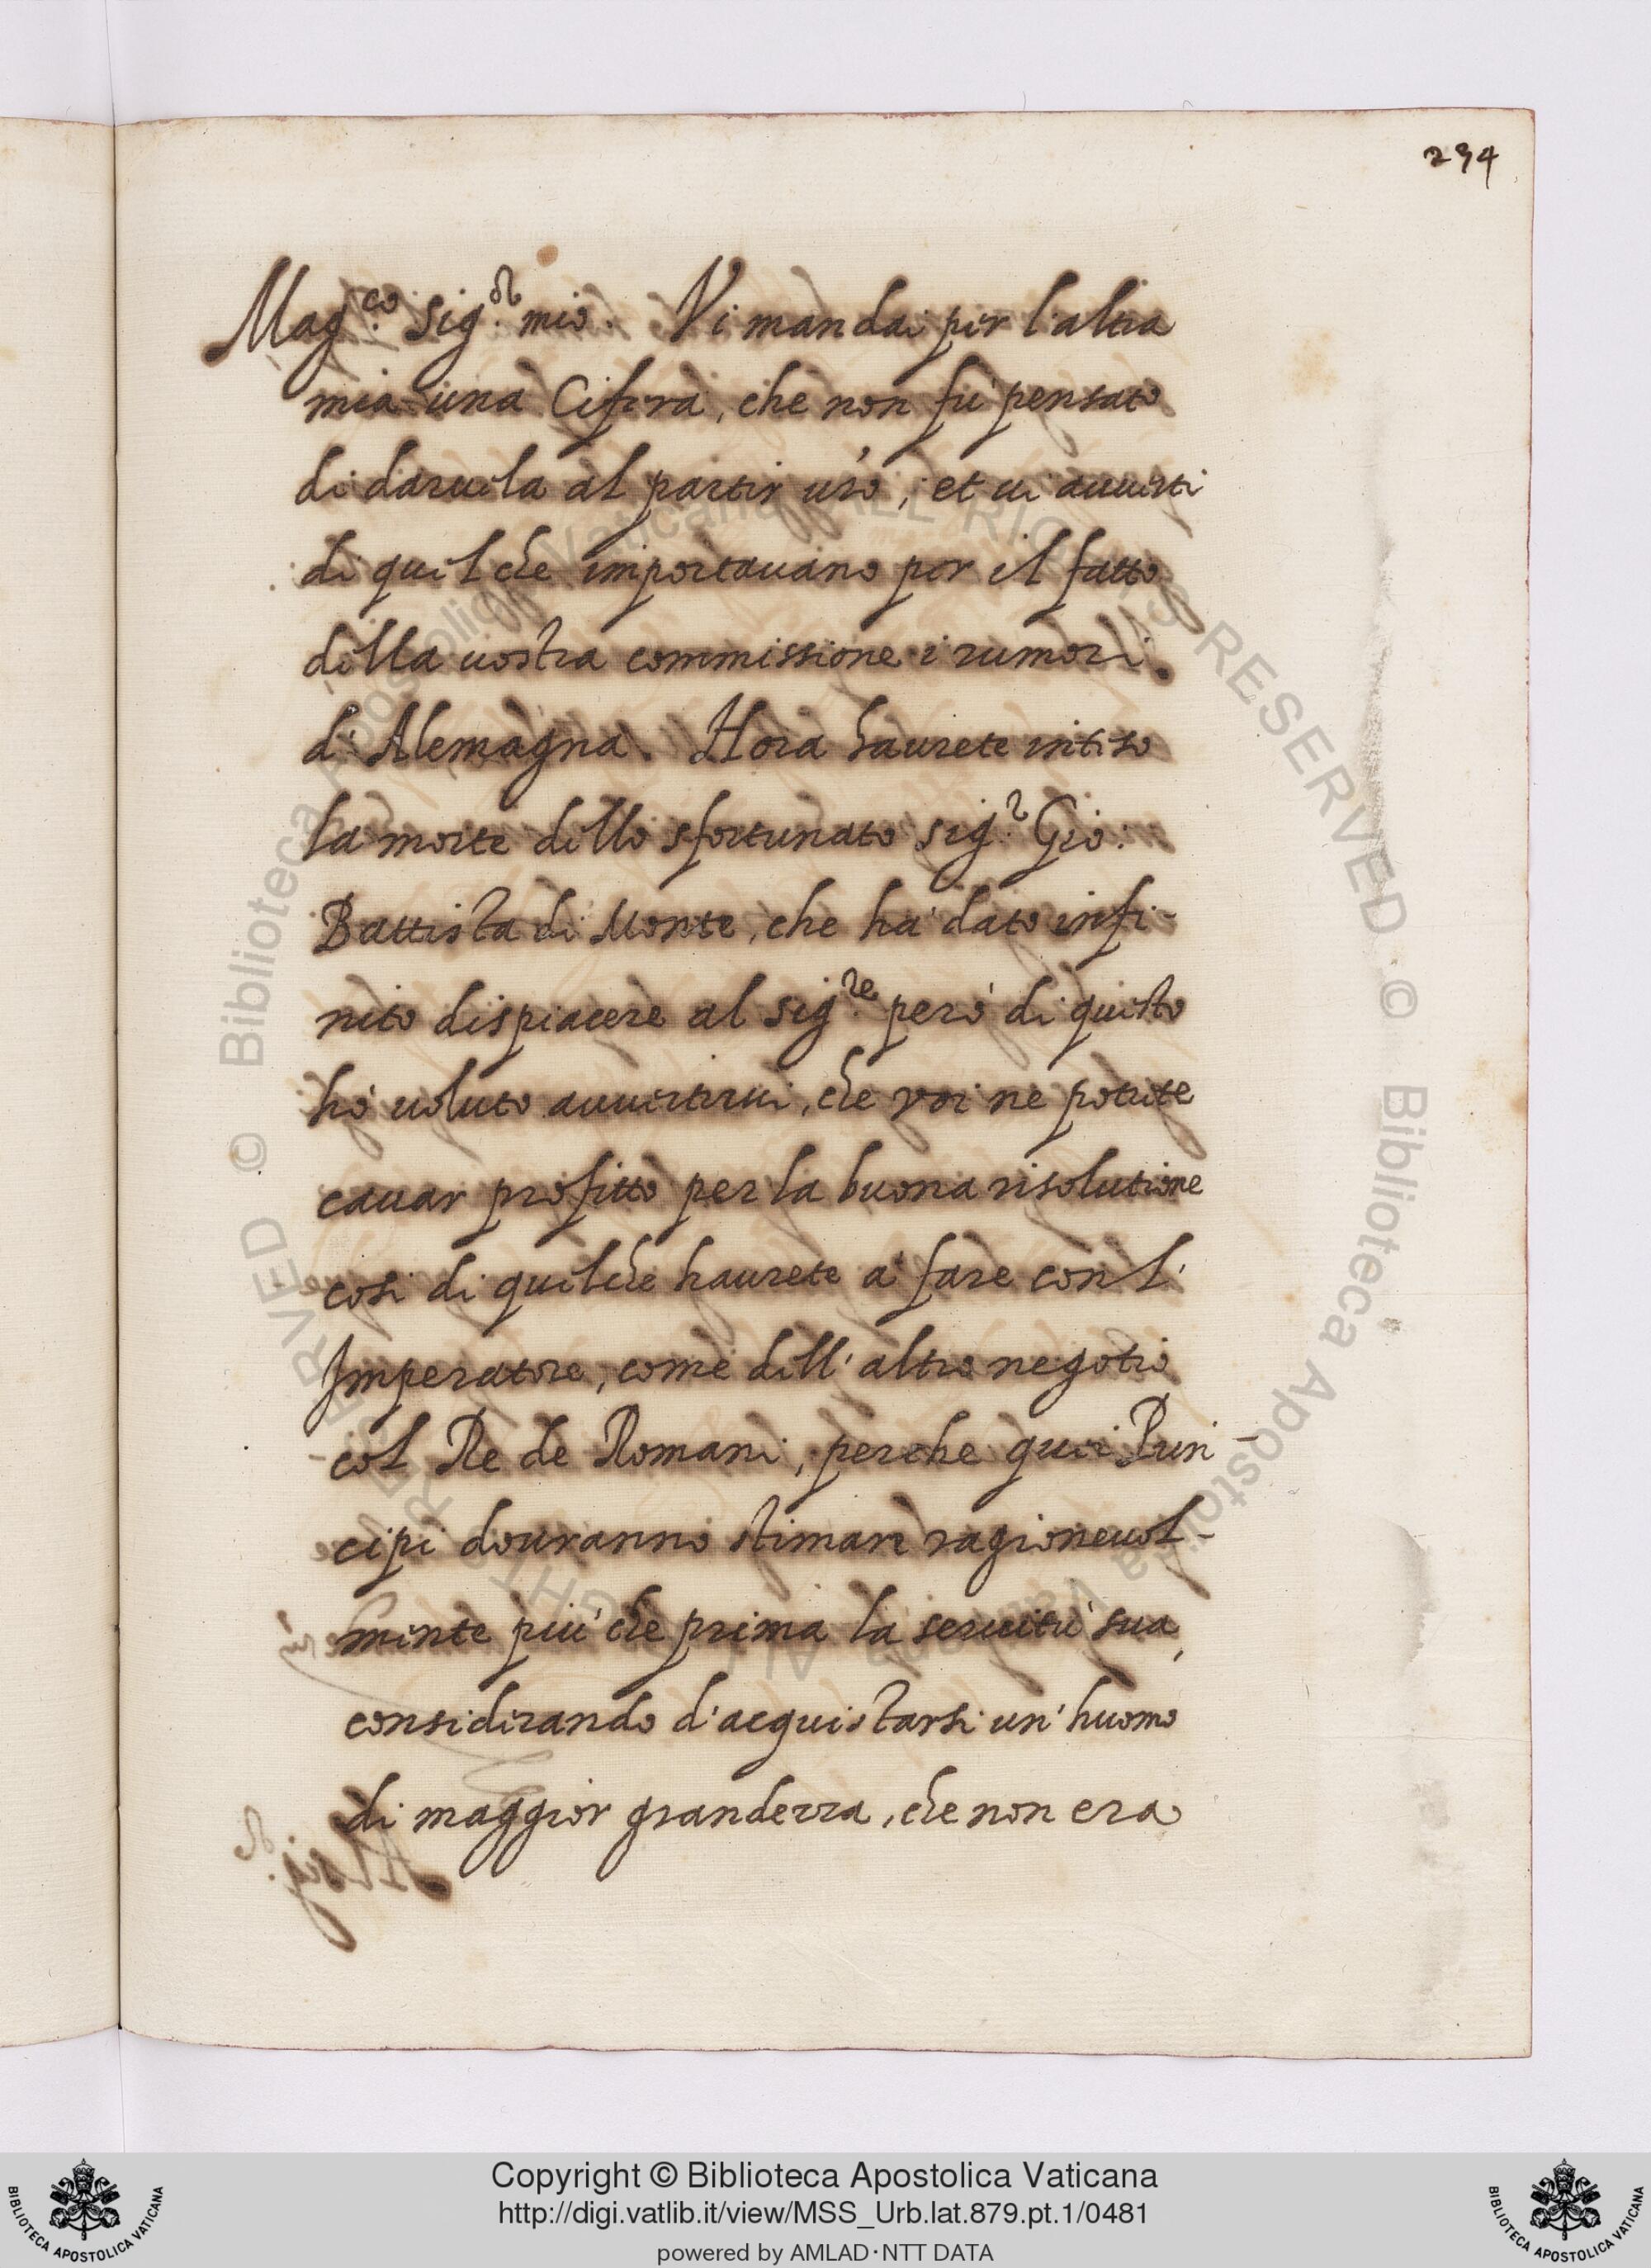 234
Mag.co Sig.or mio. Vi mandai per l'altra
mia una Cifera, che non fù pensato
di daruela al partir uro, et ui auuerti
di quel che importauano per il fatto
della uostra commissione i rumori
d'Alemagna. Hora haurete inteso
la morte dello sfortunato Sig.r Gio:
Battista di Monte, che hà dato infi-
nito dispiacere al Sig.re però di questo
hò uoluto auuertirui, che voi ne potete
cauar profitto per la buona risolutione
cosi di quelche haurete à fare con l'
Imperatore, come dell'altro negotio
col Re de Romani, perche quei Prin-
cipi douranno stimare ragioneuol-
mente più che prima la seruitù sua,
considerando d'acquistarsi un'huomo
di maggior grandezza, che non era
© Biblioteca Apostolica Vaticana ALL RIGHTS RESERVED © Biblioteca Apostolica Vaticana ALL RIGHTS RESERVED
Copyright © Biblioteca Apostolica Vaticana
http://digi.vatlib.it/view/MSS_Urb.lat.879.pt.1/0481
powered by AMLAD·NTT DATA
BIBLIOTECA APOSTOLICA VATICANA
BIBLIOTECA APOSTOLICA VATICANA